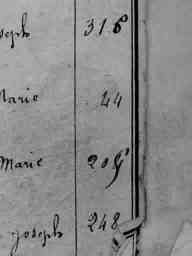 oseph 316
Marie 44
Marie 209
Joseph 248